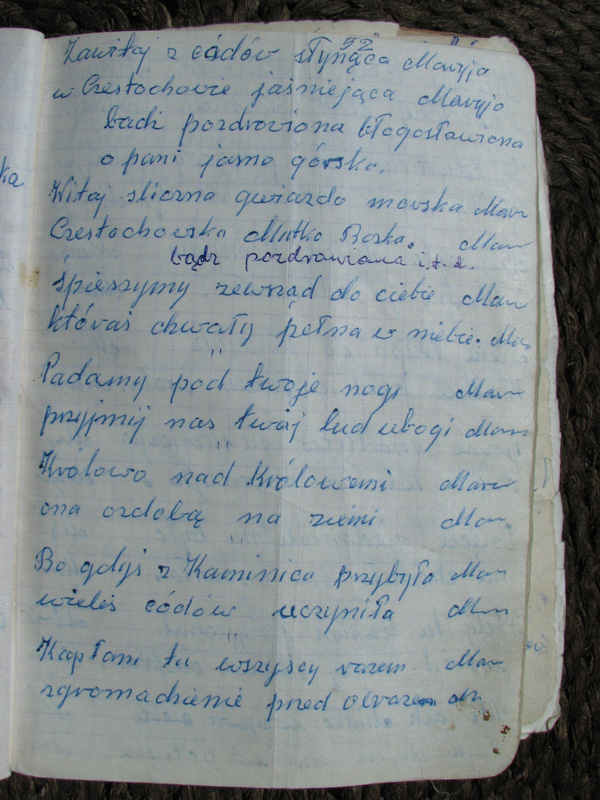 52
Zawitaj z códów słynąca Maryjo
w Czestochowie jaśniejąca Maryjo
badz pozdrowiona błogosławiona
o pani jasno górska.
Witaj sliczna gwiazdo morska Mar
Czestochowska Matko Boska. Mar
bądz pozdrawiona i.t.d.
śpieszymy zewsząd do ciebie Mar
któraś chwały pełna w niebie. Mar
"
Padamy pod twoje nogi Mar
przyjmij nas twój lud ubogi Mar
"
Królowo nad Królowemi Mar
ona ozdobą na ziemi Mar
Bo gdyś z Kamińica przybyła Mar
wieleś códów uczyniła Mar
"
Kapłani tu wszyscy razem Mar
zgromadzienie pred ołtarzem Mar
ka